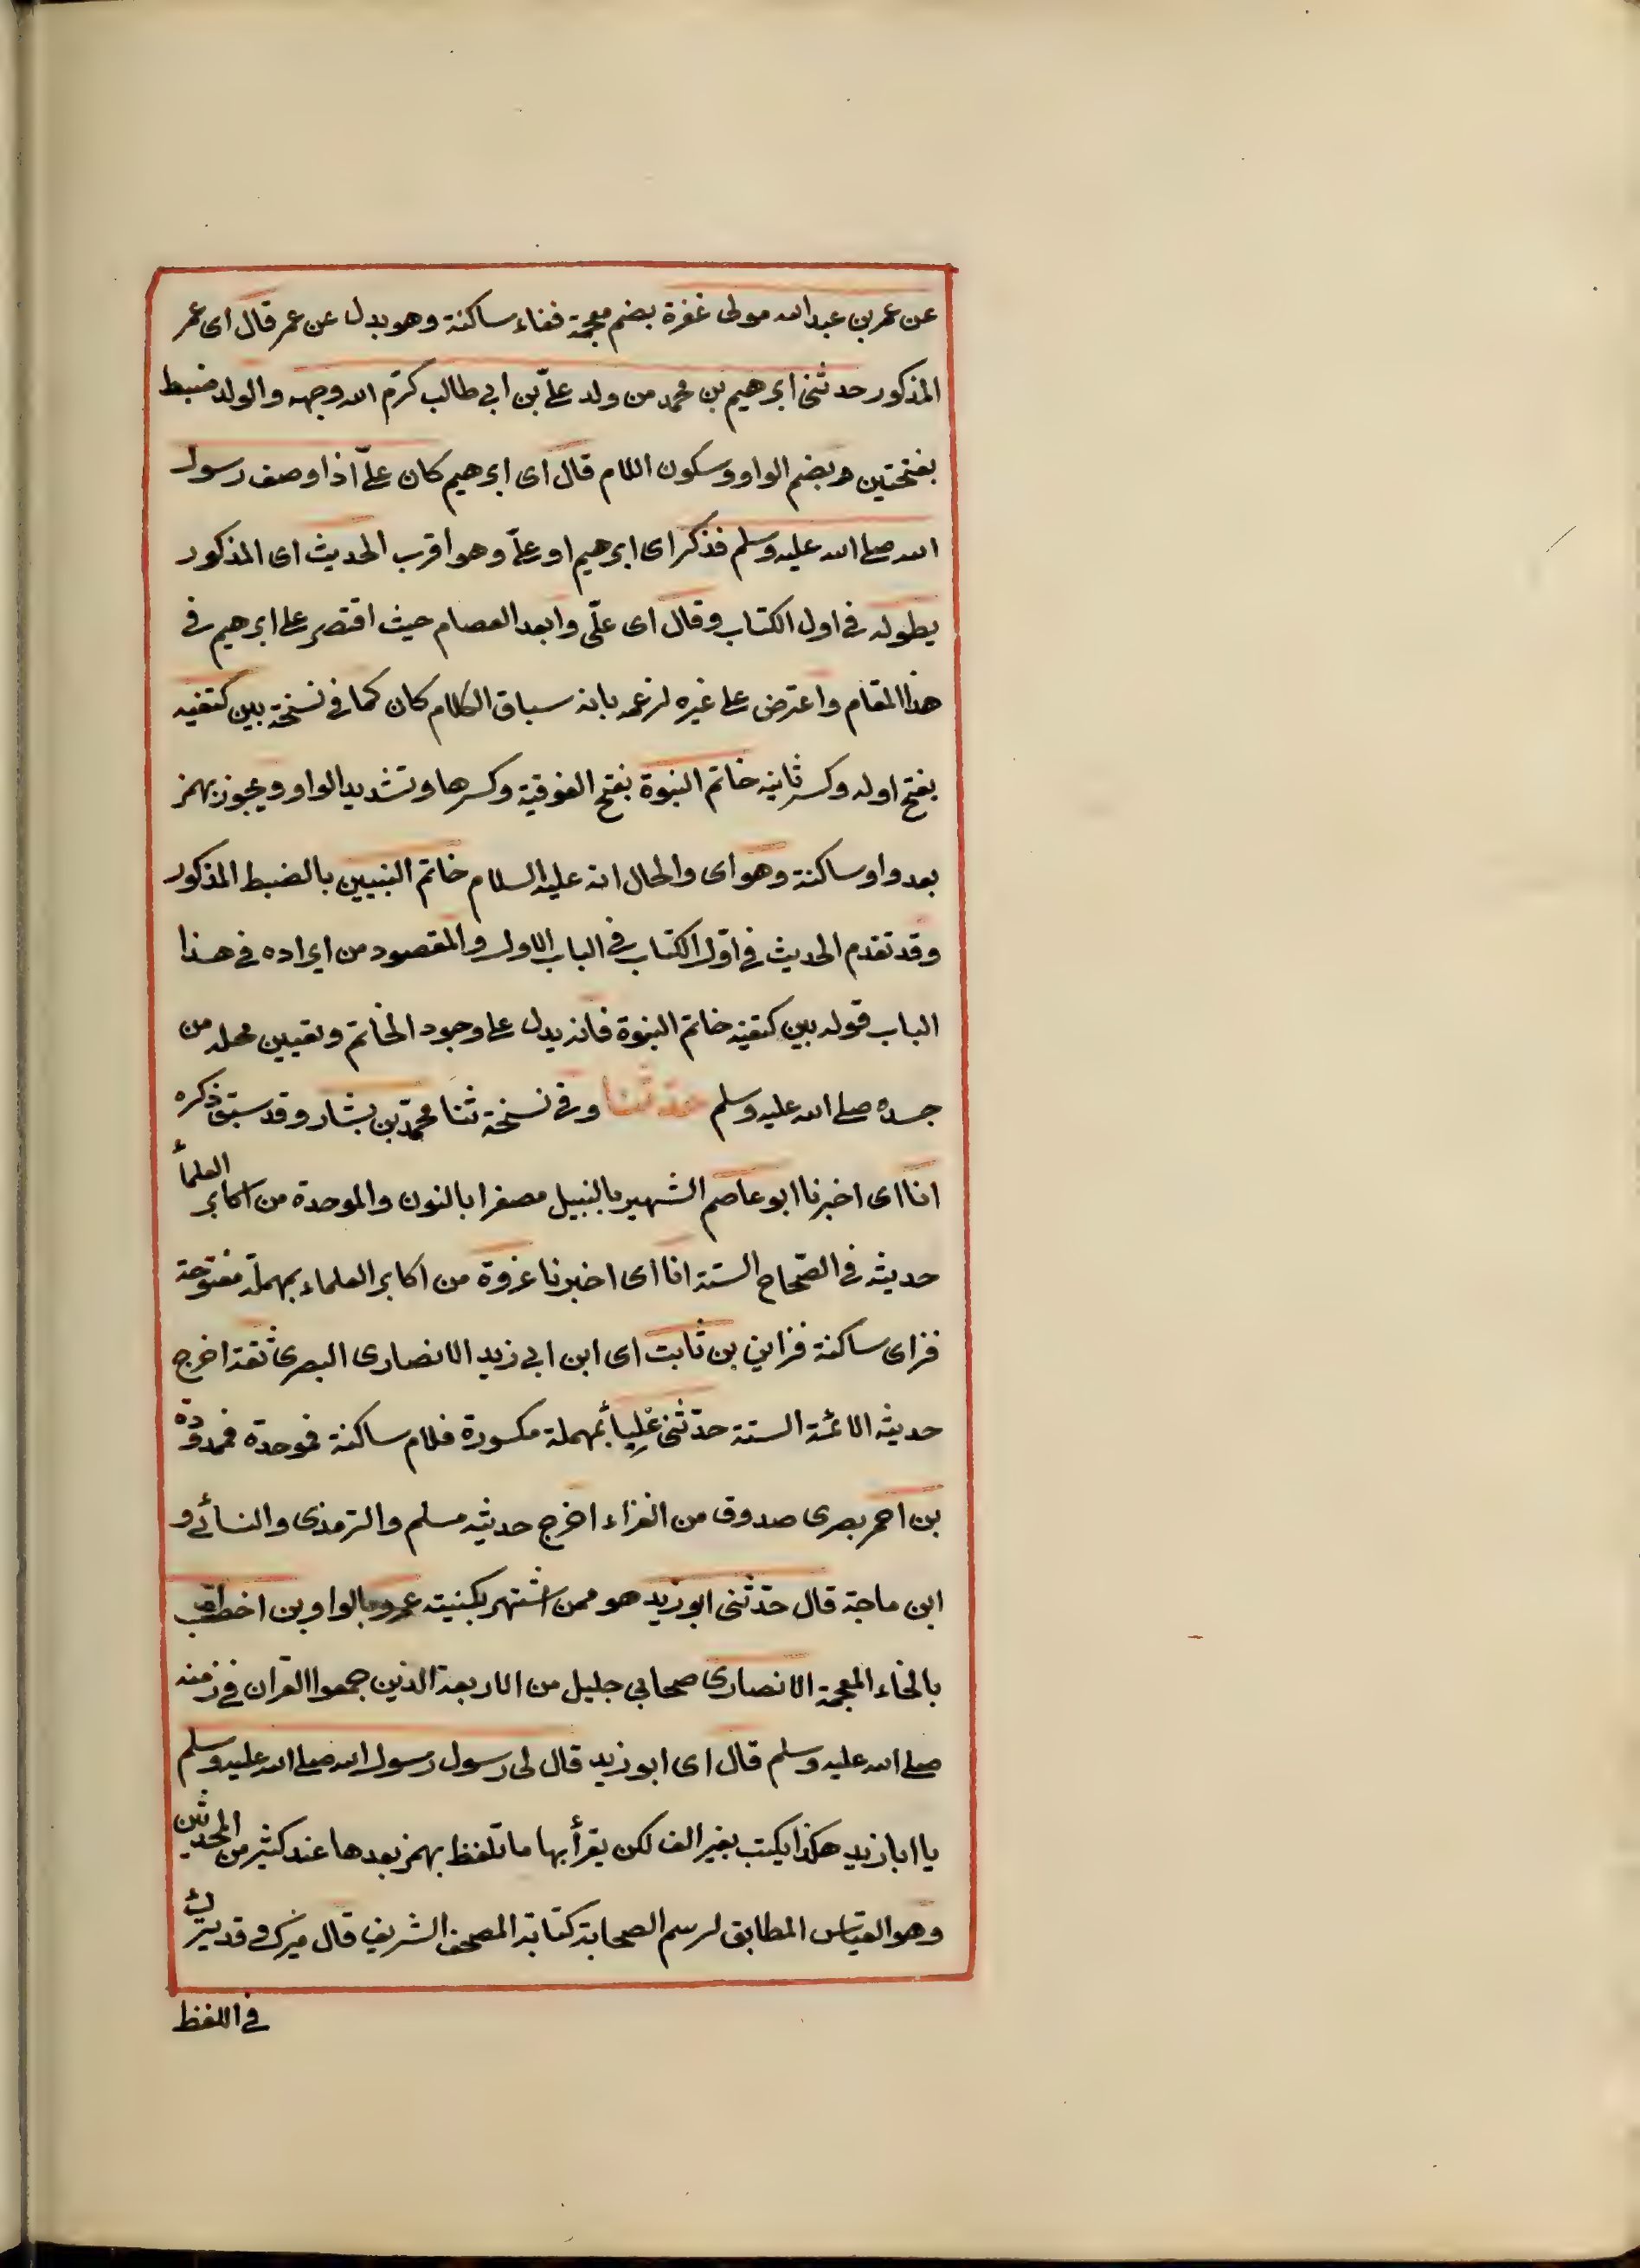 عن عمر بن عبد الله مولى غفرة بضم معجمة ففاء ساكنة وهو بدل عن عمر قال اى عمر
المذكور حدثنى ابرهيم بن محمد من ولد علىّ بن ابى طالب كرّم الله وجهه والولد ضبط
بفتحتين وبضم الواو وسكون اللام قال اى ابرهيم كان علىّ اذا وصف رسول
الله صلى الله عليه وسلم فذكر اى ابرهيم او علىّ وهو اقرب الحديث اى المذكور
بطوله فى اول الكتاب وقال اى علّى وابعد العصام حيث اقتصر على ابرهيم فى
هذا المقام واعترض على غيره لزعمه بانه سباق الكلام كان كما فى نسخة بين كتفيه
بفتح اوله وكسر ثانيه خاتم النبوة بفتح الفوقية وكسرها وتشديد الواو ويجوز بهمز
بعد واو ساكنة وهو اى والحال انه عليه السلام خاتم النبيين بالضبط المذكور
وقد تقدم الحديث فى اوّل الكتاب فى الباب الاول والمقصود من ايراده فى هذا
الباب قوله بين كتفيه خاتم النبوة فانه يدل على وجود الخاتم وتعيين محله من
جسده صلى الله عليه وسلم حدثنا وفى نسخة ثنا محمّد بن بشار وقد سبق ذكره
انا اى اخبرنا ابو عاصم الشهير بالنبيل مصغرا بالنون والموحدة من اكابر العلمأ
حديثه فى الصّحاح الستة انا اى اخبرنا عزوة من اكابر العلماء بمهملة مفتوحة
فزاى ساكنة فراين بن ثابت اى ابن ابى زيد الانصارى البصرى ثقة اخرج
حديثه الائمة الستة حدّثنى عِلبأ بمهملة مكسورة فلام ساكنة فموحدة فمدودة
بن احمر بصرى صدوق من القراء اخرج حديثه مسلم والترمذى والنسائى و
ابن ماجة قال حدّثنى ابو زيد هو ممن اشتهر بكنيته عمرو بالواو بن اخطب
بالخاء المعجمة الانصارى صحابى جليل من الاربعة الذين جمعوا القران فى زمنه
صلى الله عليه وسلم قال اى ابو زيد قال لى رسول رسول الله صلى الله عليه وسلم
يا ابا زيد هكذا يكتب بغير الف لكن يقرأ بها ما تلفظ بهمز بعدها عند كثير من المحدثين
وهو القياس المطابق لرسم الصحابة كتابة المصحف الشريف قال ميرك وقد يترك
فى اللفظ